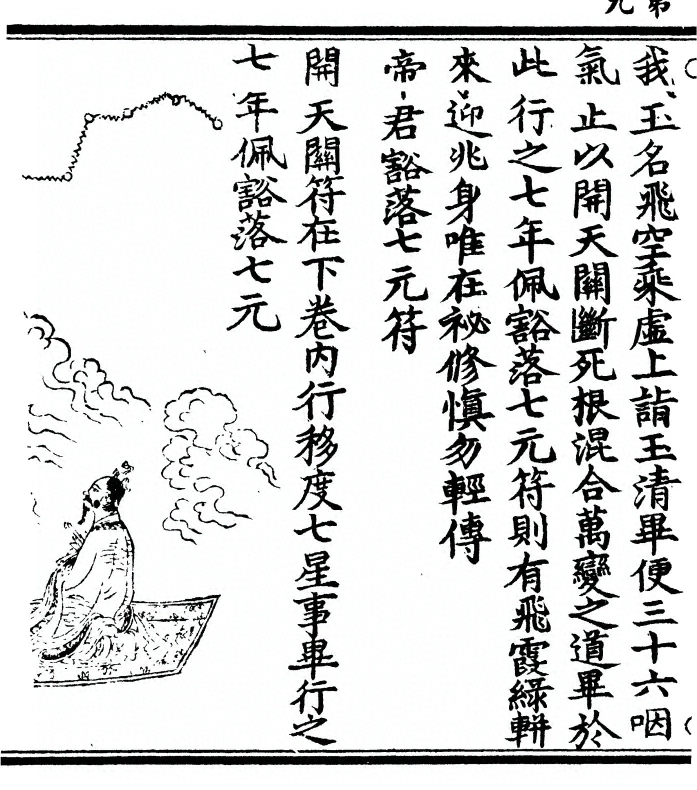 我玉名飛空乘虛上詣玉清畢便三十六咽
氣止以開天關斷死根混合萬變之道畢於
此行之七年佩豁落七元符則有飛霞綠軿
來迎兆身唯在祕修慎勿輕傳
帝君豁落七元符
開天關符在下卷內行移度七星事畢行之
七年佩豁落七元